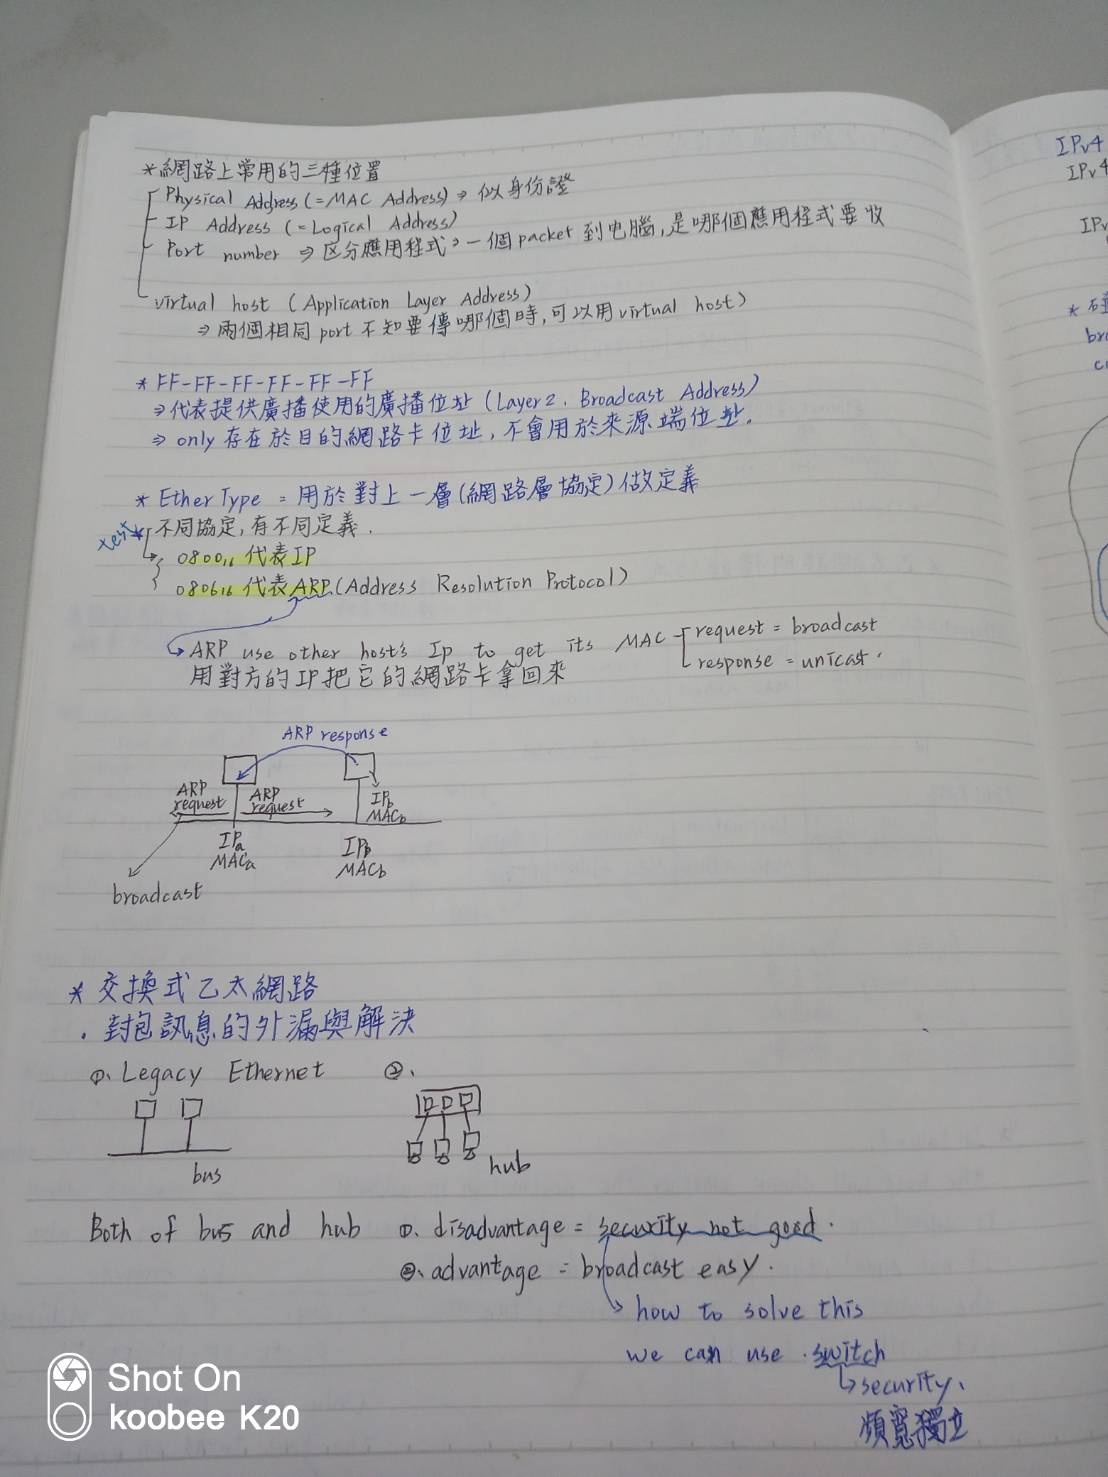 *網路上常用的三種位置
Physical Address(=MAC Address)⇒似身份證
IP Address (=Logical Address)
Port number ⇒区分應用程式⇒一個packet到电腦,是哪個應用程式要收
virtual host (Application Layer Address)
⇒兩個相同port不知要傳哪個時,可以用virtual host)
*FF-FF-FF-FF-FF-FF
⇒代表提供廣播使用的廣播位址(Layer2. Broadcast Address)
⇒only存在於目的網路卡位址,不會用於來源端位址.
*Ether Type = 用於對上一層(網路層協定)做定義
test*
不同協定,有不同定義.
0800₁₆代表IP
0806₁₆代表ARP(Address Resolution Protocol)
ARP use other host's Ip to get its MAC
request = broadcast
response = unicast.
用對方的IP把它的網路卡拿回來
ARP response
ARP
request
ARP
request
IPb
MACb
IPa
MACa
IPb
MACb
broadcast
*交換式乙太網路
.封包訊息的外漏與解決
①、Legacy Ethernet ②、
bus
hub
Both of bus and hub ①. disadvantage = security not good.
②、advantage = broadcast easy.
how to solve this
we can use .switch
security、
頻寬獨立
IPv4
IPv4
IPv
*
bro
c
Shot On
koobee K20